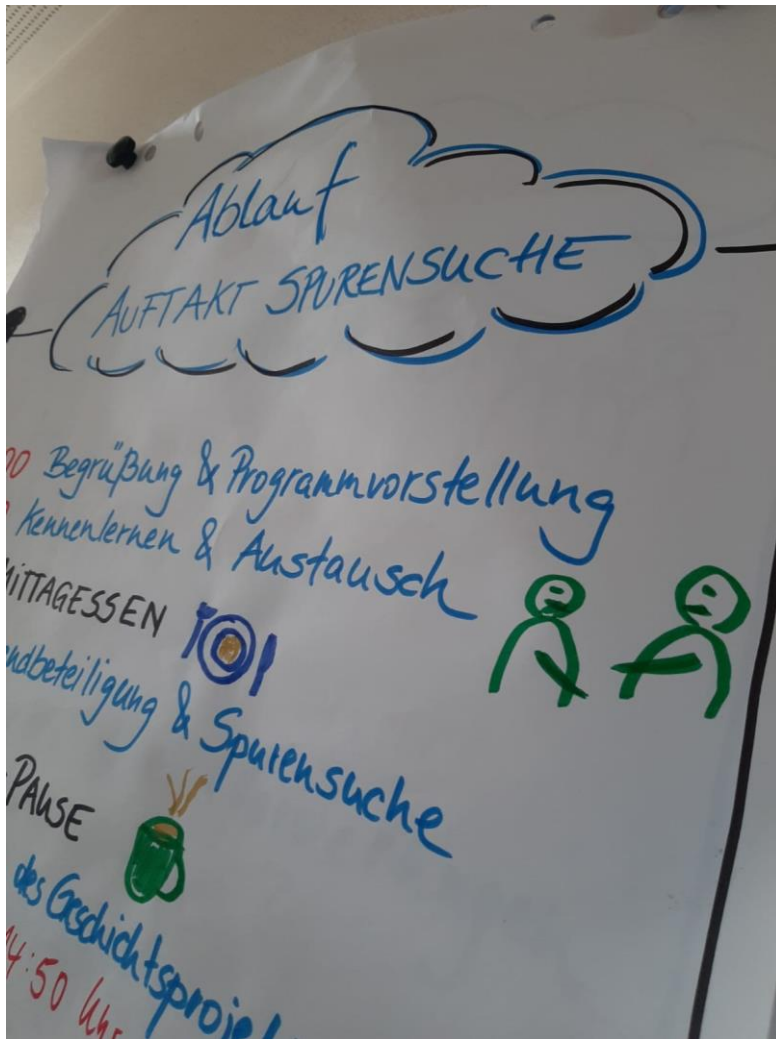 Ablauf
AUFTAKT SPURENSUCHE
00 Begrüßung & Programmvorstellung
Kennenlernen & Austausch
MITTAGESSEN
ndbeteiligung & Spurensuche
PAUSE
des Geschichtsproje
14:50 Uhr